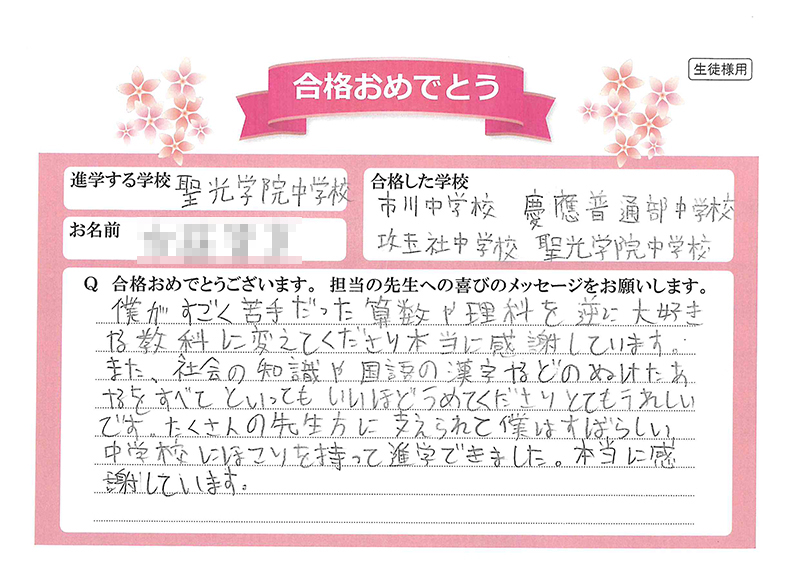 合格おめでとう
生徒様用
進学する学校 聖光学院中学校
合格した学校
市川中学校 慶應普通部中学校
攻玉社中学校 聖光学院中学校
お名前
Q 合格おめでとうございます。担当の先生への喜びのメッセージをお願いします。
僕がすごく苦手だった算数や理科を逆に大好き
な教科に変えてくださり本当に感謝しています。
また、社会の知識や国語の漢字などのぬけたあ
なをすべてといってもいいほどうめてくださりとてもうれしい
です。たくさんの先生方に支えられて僕はすばらしい
中学校にほこりを持って進学できました。本当に感
謝しています。